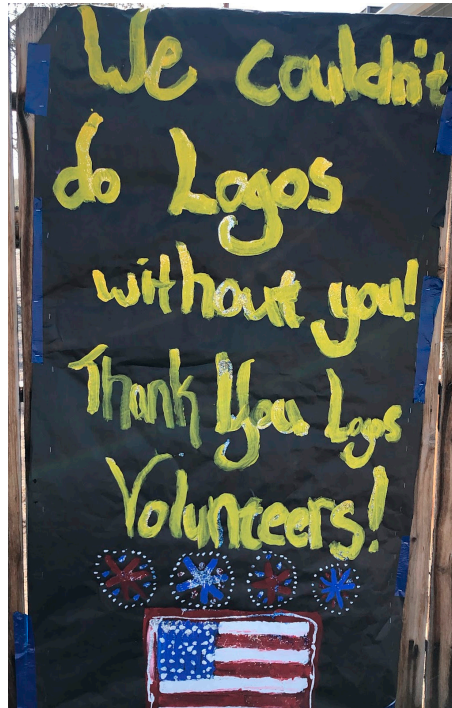 We couldn't
do Logos
without you!
Thank You Logos
Volunteers!